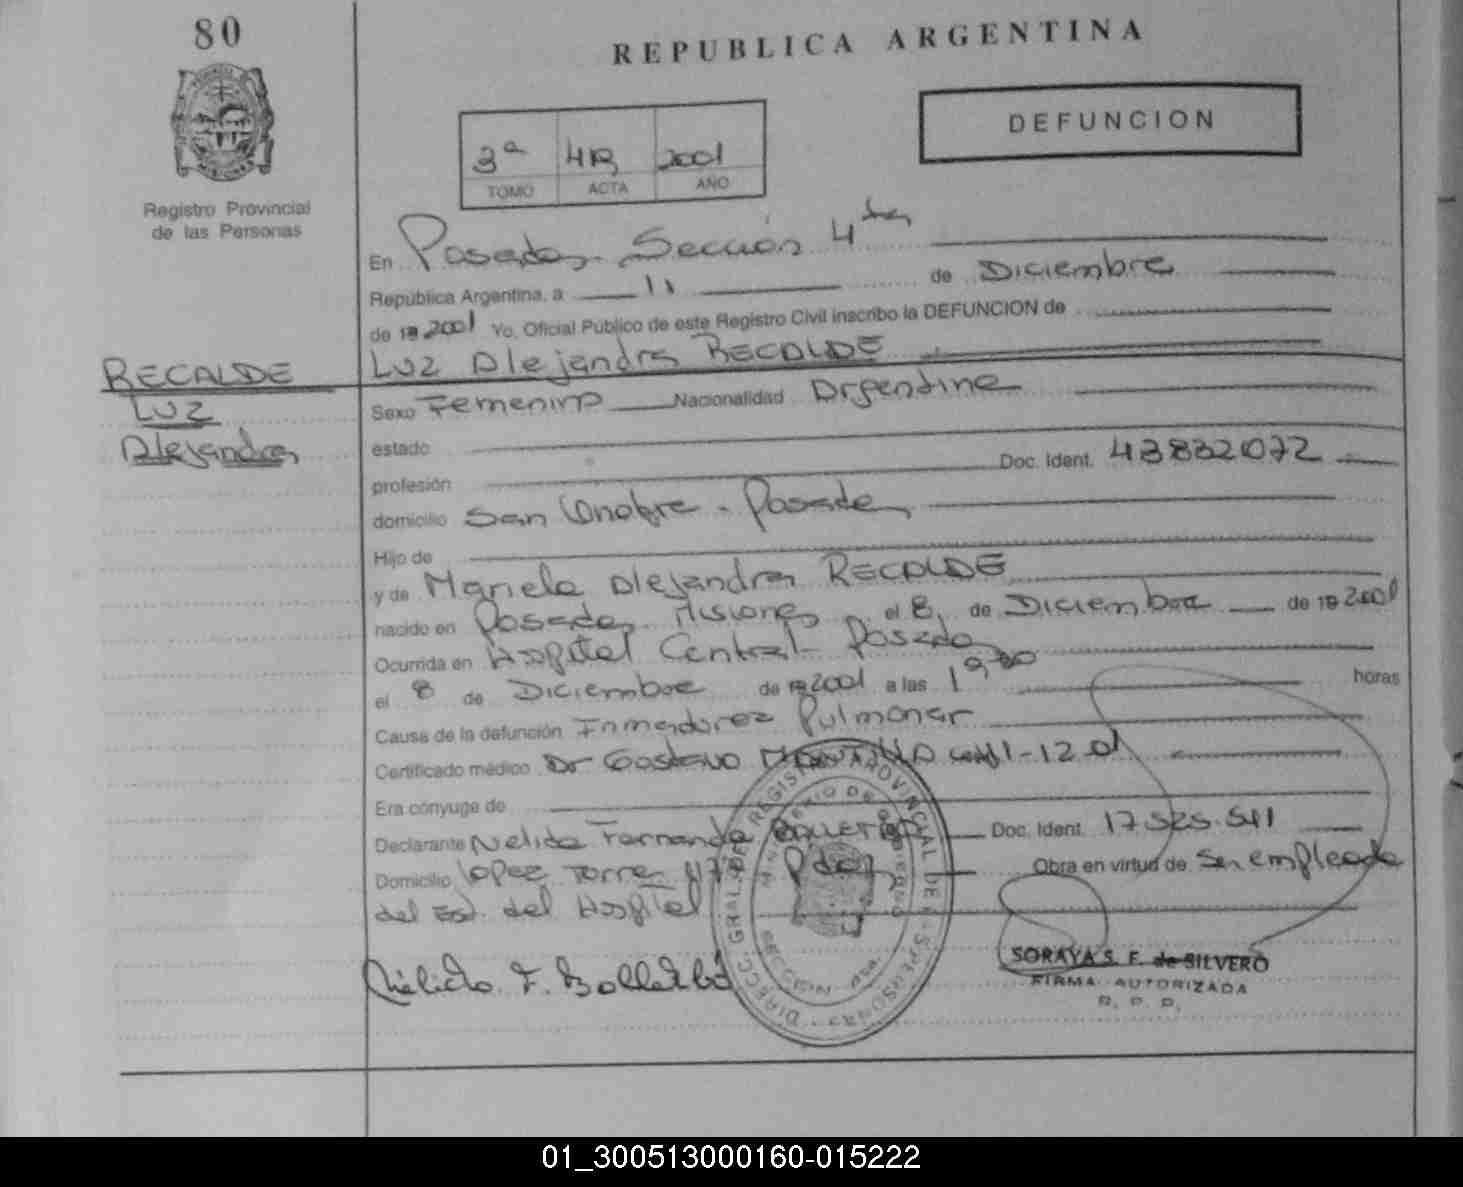 80
REPUBLICA ARGENTINA
DEFUNCION
3ª 2001
TOMO ACTA AÑO
Registro Provincial
de las Personas
En Posadas Sección 4ta
República Argentina, a 11 de Diciembre
de 19 2001 Yo, Oficial Público de este Registro Civil inscribo la DEFUNCION de
RECALDE
Luz
Alejandra
Luz Alejandra RECALDE
Sexo Femenino Nacionalidad Argentina
estado
profesión Doc. Ident. 43832072
domicilio San Onofre - Posadas
Hijo de
y de Mariela Alejandra RECALDE
nacido en Posadas Misiones el 8 de Diciembre de 19 2001
Ocurrida en Hospital Central - Posadas
el 8 de Diciembre de 19 2001 a las horas
Causa de la defunción Inmadurez Pulmonar
Certificado médico Dr Gustavo
Era cónyuge de
Declarante Nelida Fernanda Doc. Ident. 17.525.511
Domicilio Lopez Torres Pdas Obra en virtud de Ser empleada
del Est. del Hospital
DIRECC. GRAL. DEL REGISTRO PROVINCIAL DE LAS PERSONAS
MINISTERIO DE GOBIERNO
SORAYA S. F. de SILVERO
FIRMA AUTORIZADA
R. P. P.
01_300513000160-015222